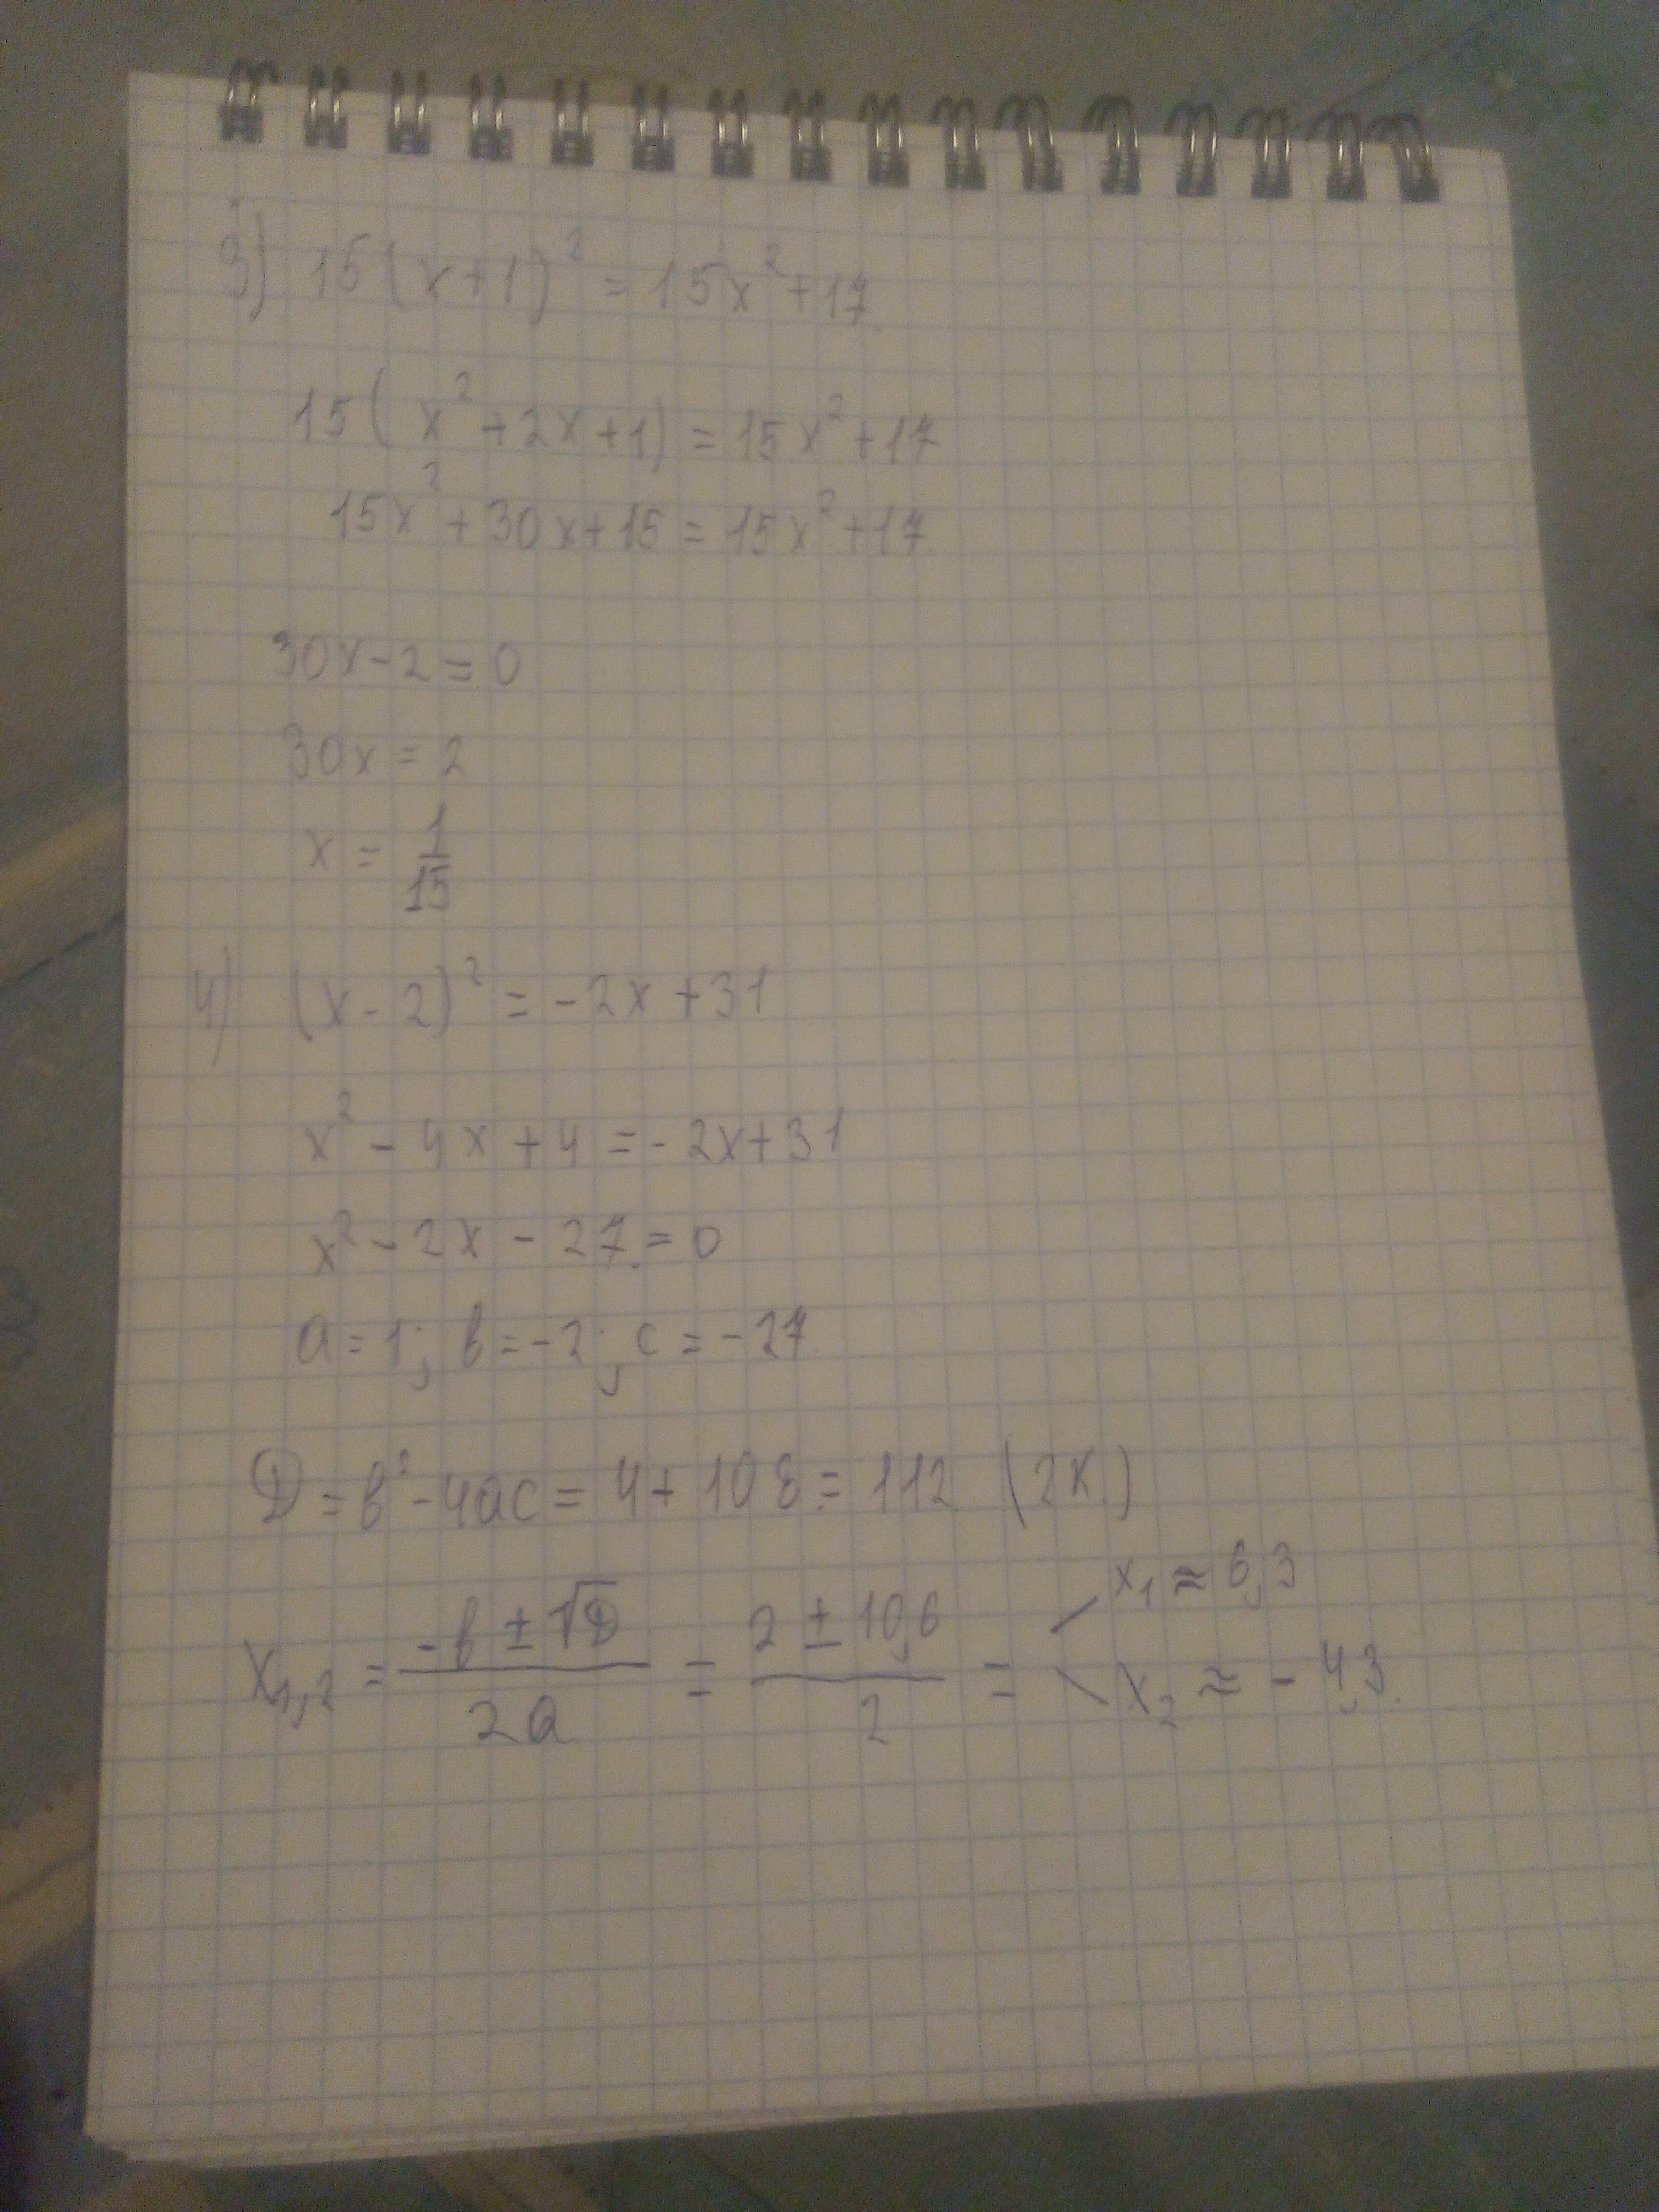 3) 15(x+1)² = 15x²+17
15(x²+2x+1) = 15x²+17
15x²+30x+15 = 15x²+17
30x-2=0
30x=2
x = 1/15
4) (x-2)² = -2x+31
x² - 4x + 4 = -2x+31
x² - 2x - 27 = 0
a=1; b=-2; c=-27
D = b² - 4ac = 4+108 = 112 (2K)
x₁,₂ = (-b ± √D)/2a = (2 ± 10,6)/2 = x₁ ≈ 6,3
x₂ ≈ -4,3